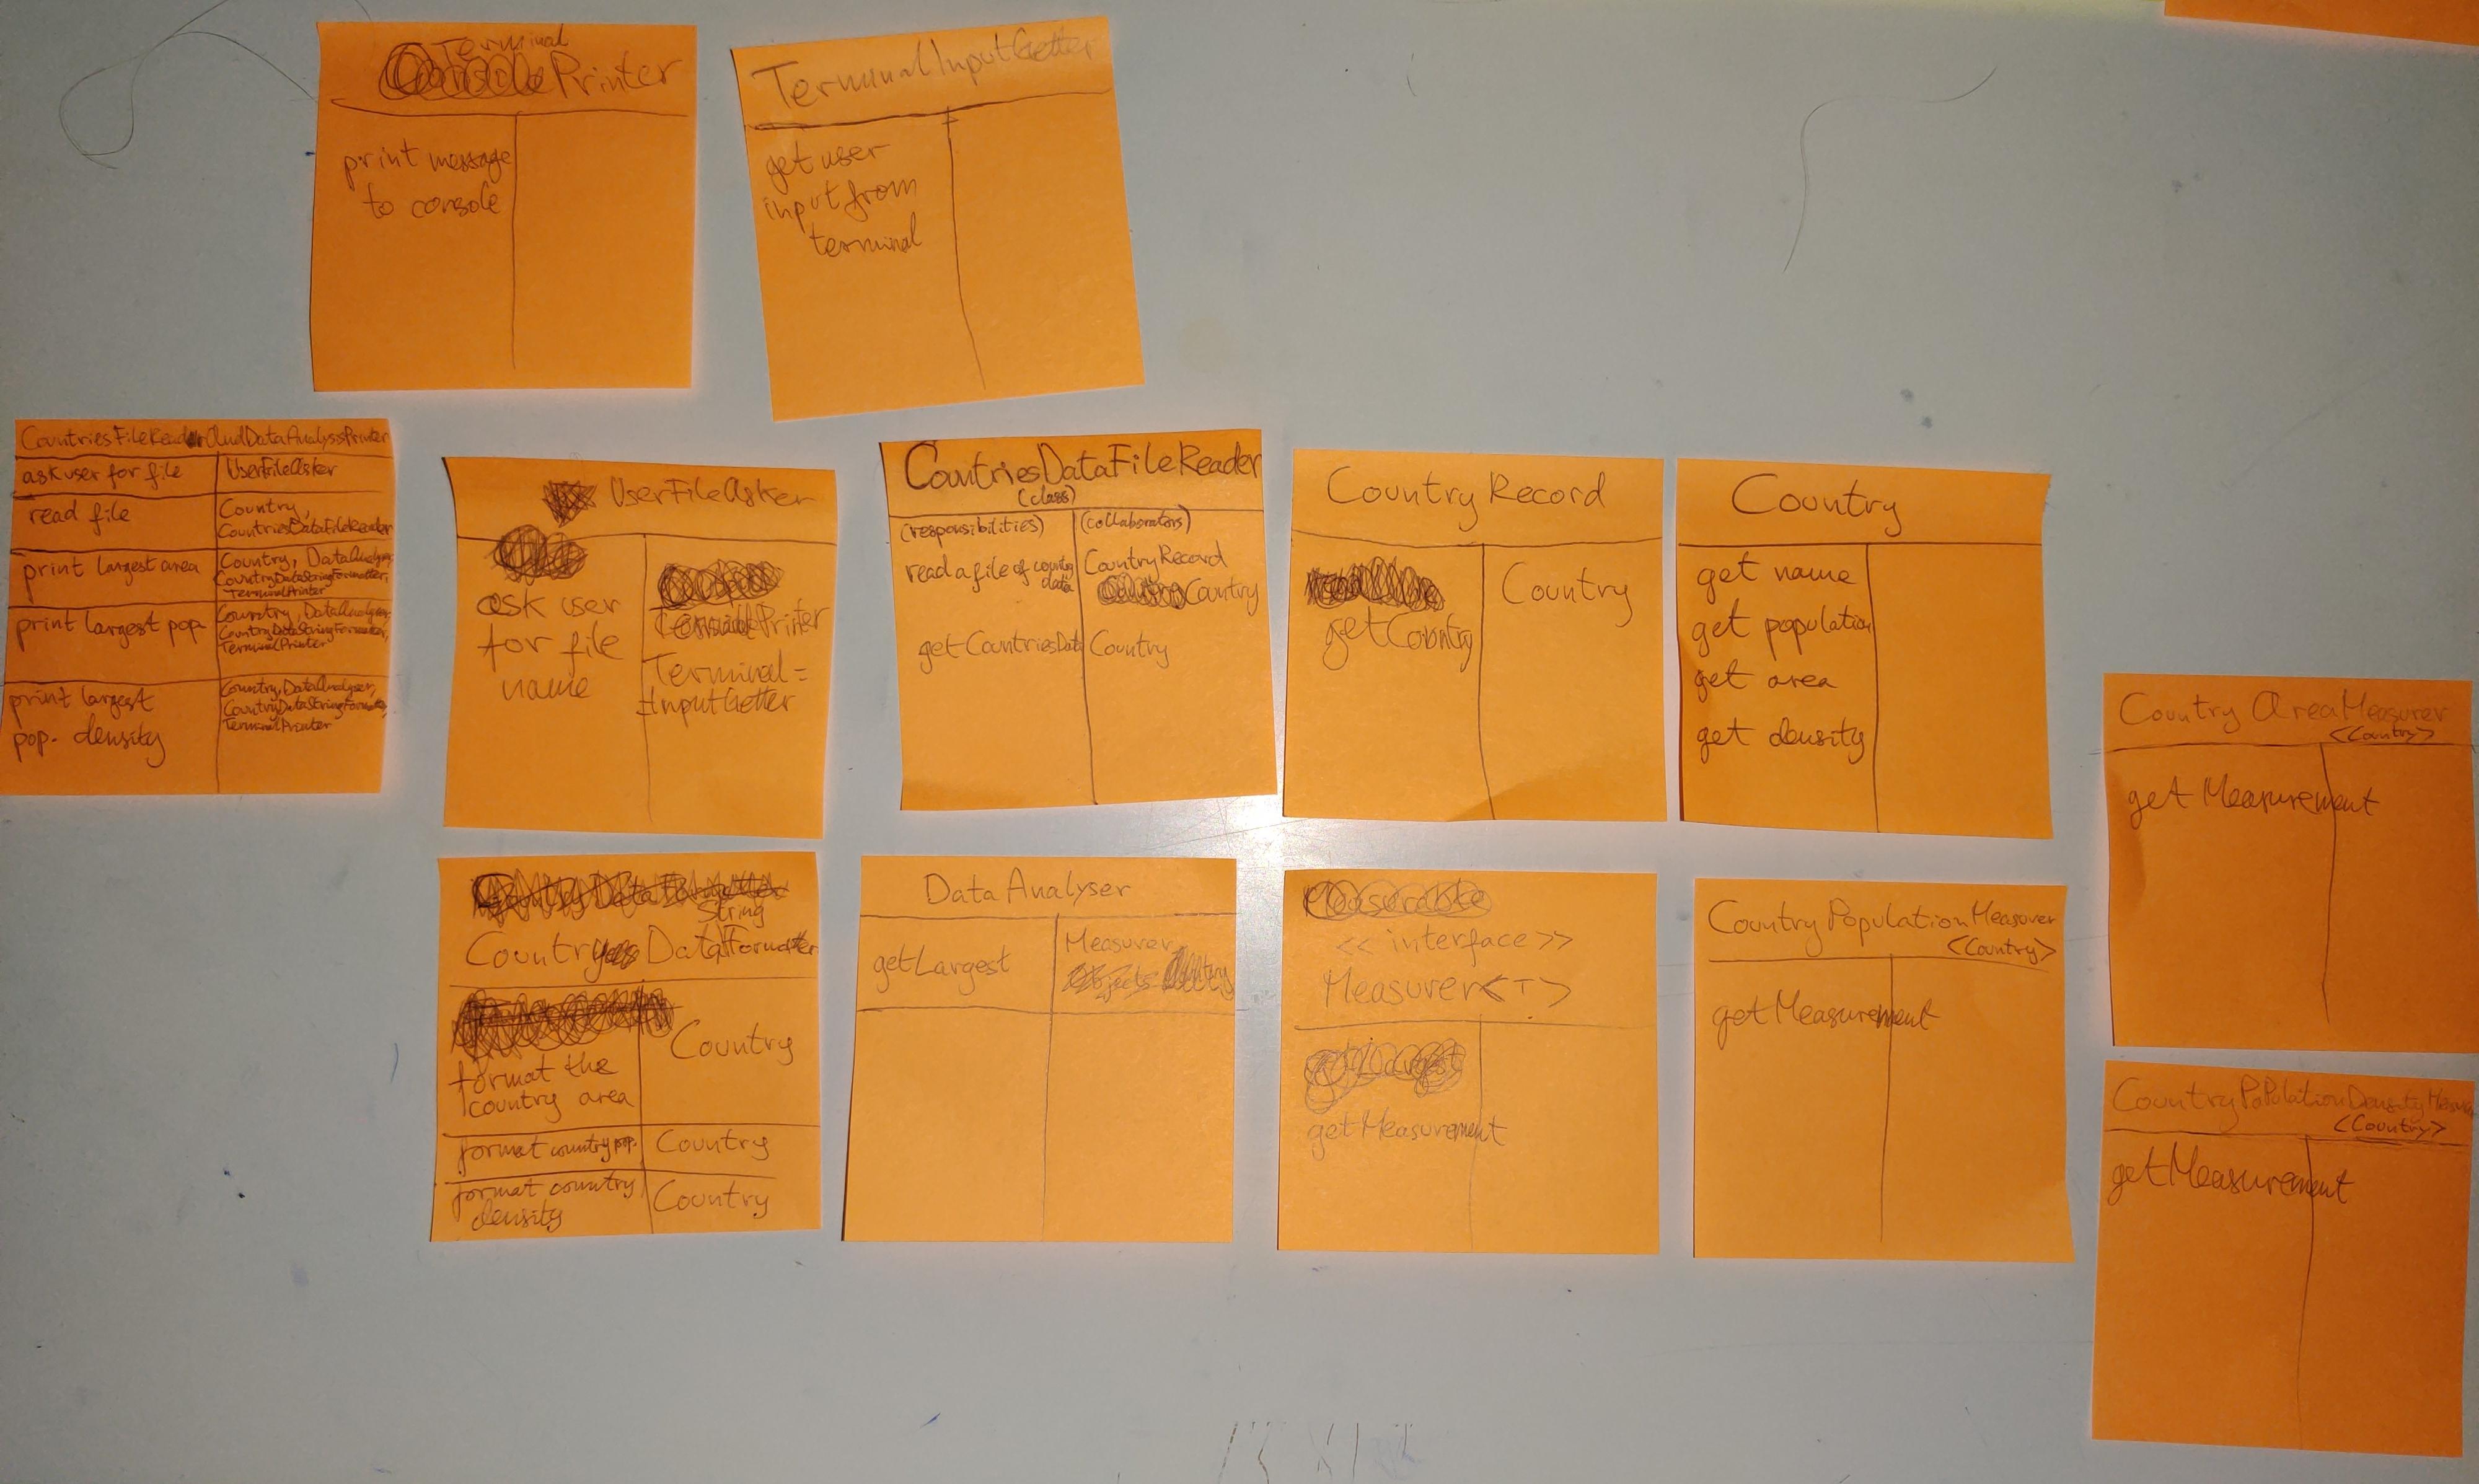 Terminal
Printer
print message
to console
TerminalInputGetter
get user
input from
terminal
CountriesFileReaderAndDataAnalysisPrinter
ask user for file
UserFileAsker
read file
Country,
CountriesDataFileReader
print largest area
Country, DataAnalyser,
CountryDataStringFormatter,
TerminalPrinter
print largest pop.
Country, DataAnalyser,
CountryDataStringFormatter,
TerminalPrinter
print largest
pop. density
Country, DataAnalyser,
CountryDataStringFormatter,
TerminalPrinter
UserFileAsker
ask user
for file
name
Printer
Terminal=
=InputGetter
CountriesDataFileReader
(class)
(responsibilities)
(collaborators)
read a file of country
data
CountryRecord
Country
getCountriesData
Country
Country Record
getCountry
Country
Country
get name
get population
get area
get density
Country AreaMeasurer
<Country>
get Measurement
String
Country DataFormatter
format the
country area
Country
format country pop.
Country
format country
density
Country
DataAnalyser
getLargest
Measurer
Measurable
<< interface >>
Measurer<T>
getLargest
getMeasurement
CountryPopulationMeasurer
<Country>
getMeasurement
CountryPoPulationDensityMeasu
<Country>
getMeasurement